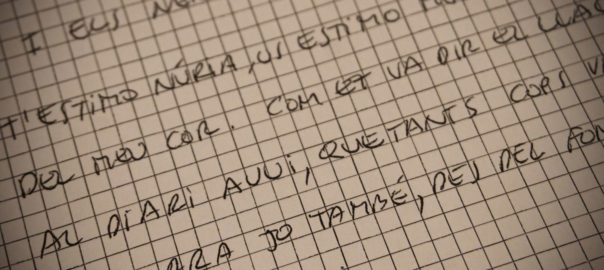 I ELS
T'ESTIMO NÚRIA, US ESTIMO
DEL MEU COR. COM ET VA DIR EL
AL DIARI AVUI, QUE TANTS COPS
ARA JO TAMBÉ, DES DEL